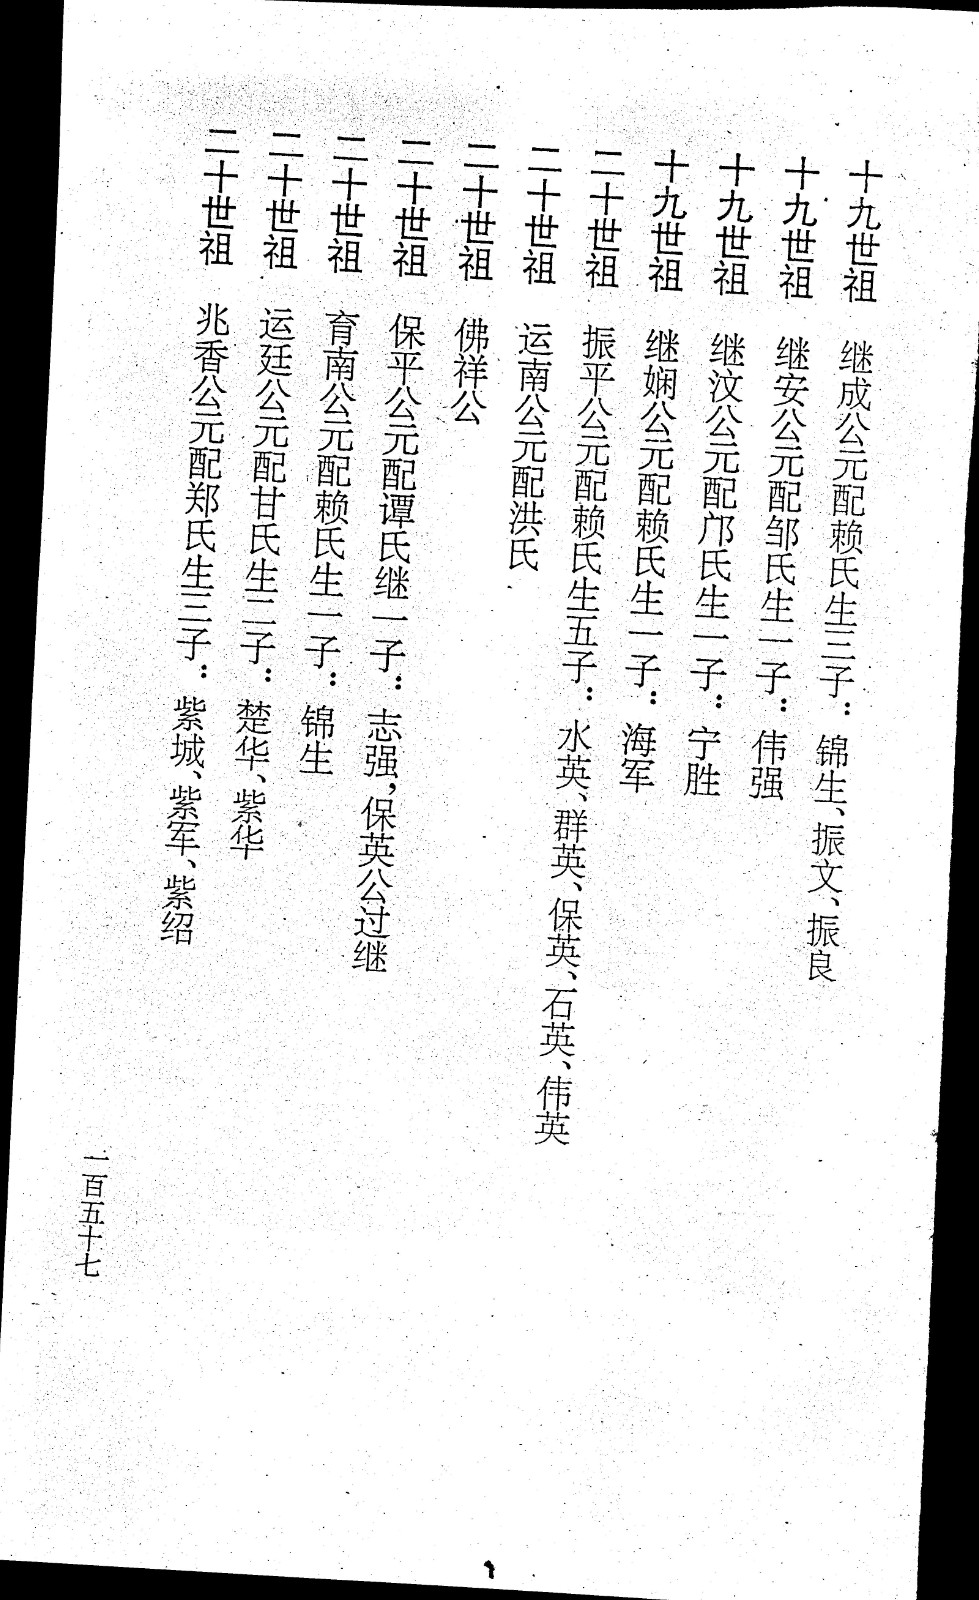 十九世祖 继成公元配赖氏生三子：锦生、振文、振良
十九世祖 继安公元配邹氏生一子：伟强
十九世祖 继汶公元配邝氏生一子：宁胜
十九世祖 继娴公元配赖氏生一子：海军
二十世祖 振平公元配赖氏生五子：水英、群英、保英、石英、伟英
二十世祖 运南公元配洪氏
二十世祖 佛祥公
二十世祖 保平公元配谭氏继一子：志强，保英公过继
二十世祖 育南公元配赖氏生一子：锦生
二十世祖 运廷公元配甘氏生二子：楚华、紫华
二十世祖 兆香公元配郑氏生三子：紫城、紫军、紫绍
一百五十七